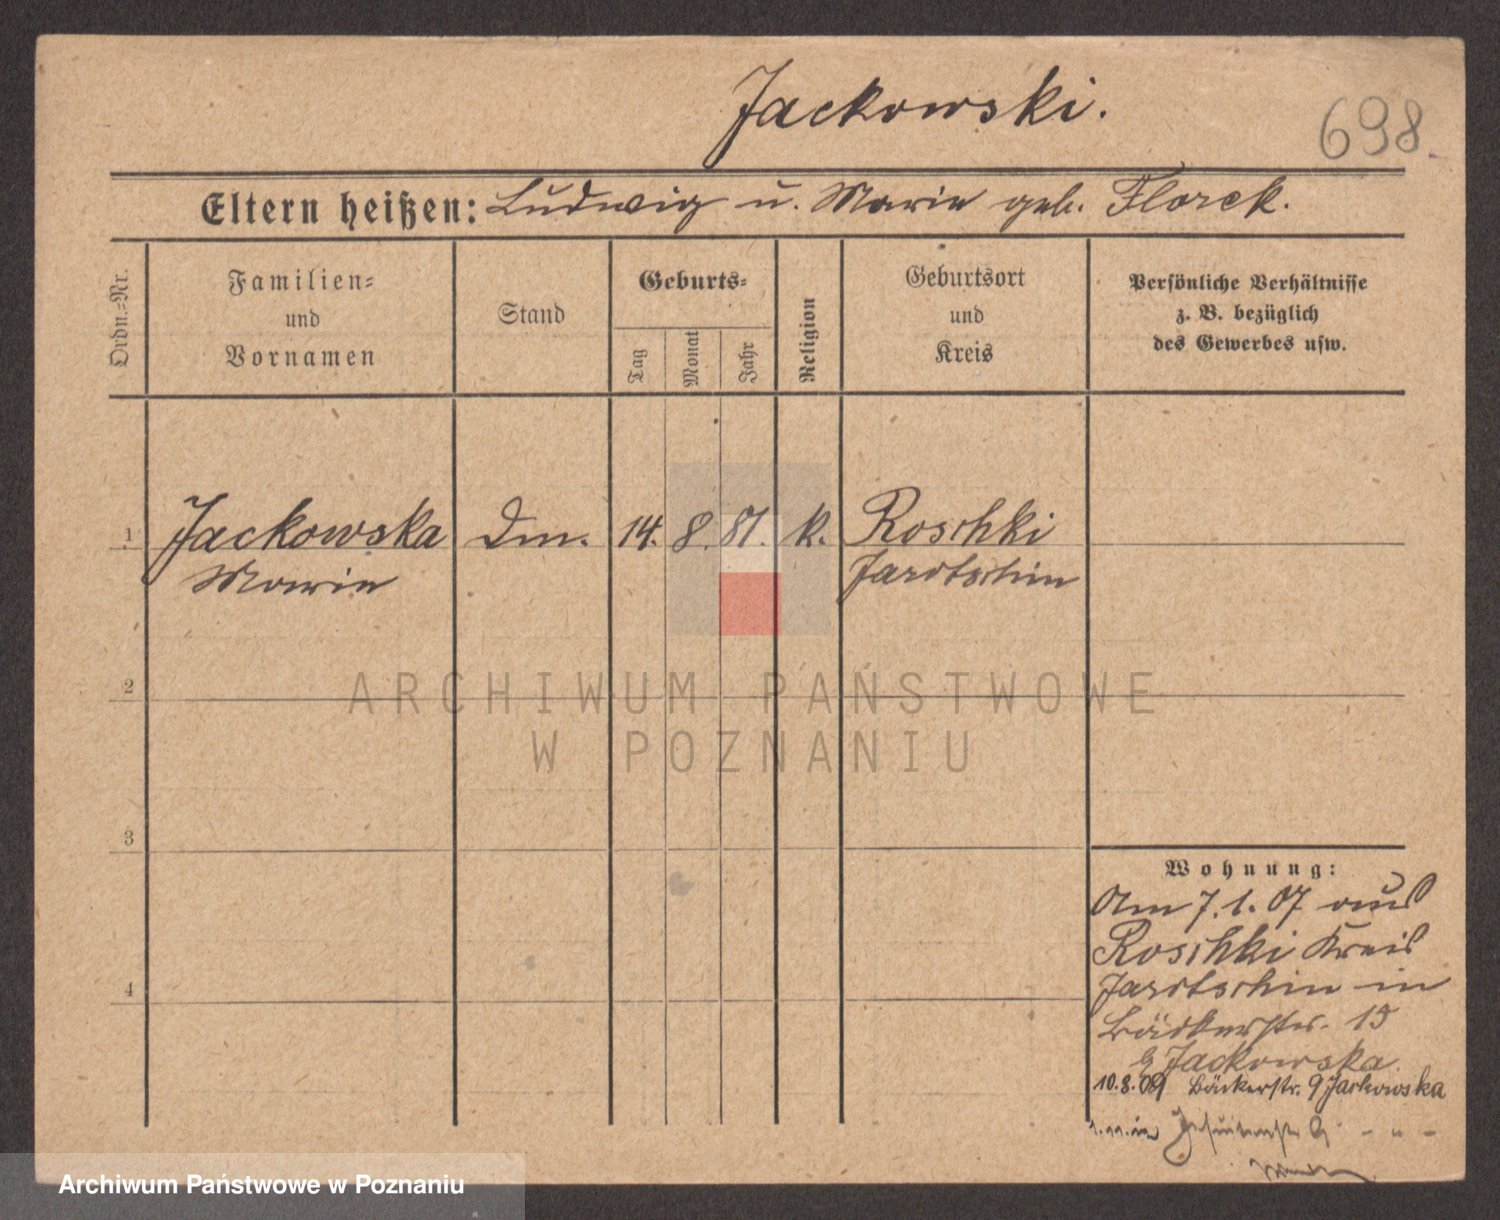 Jackowski.
698
Eltern heißen: Ludwig u. Marie geb. Florek.
Ordn.=Nr.
Familien=
und
Vornamen
Stand
Geburts=
Tag
Monat
Jahr
Religion
Geburtsort
und
Kreis
Persönliche Verhältnisse
z. B. bezüglich
des Gewerbes usw.
1 Jackowska Dm. 14. 8. 81. k. Roschki
Marie Jarotschin
2
3
4
ARCHIWUM PAŃSTWOWE
W POZNANIU
Wohnung:
Am 7.1.07 aus
Roschki Kreis
Jarotschin in
Bäckerstr. 15
Jackowska
10.8.09 Bäckerstr. 9 Jackowska
Jesuitenstr. - " -
Archiwum Państwowe w Poznaniu